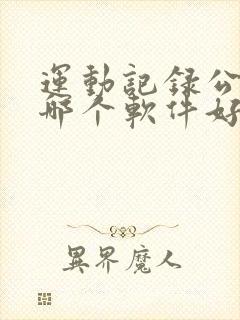 運動記録公
哪个軟件好
異界魔人